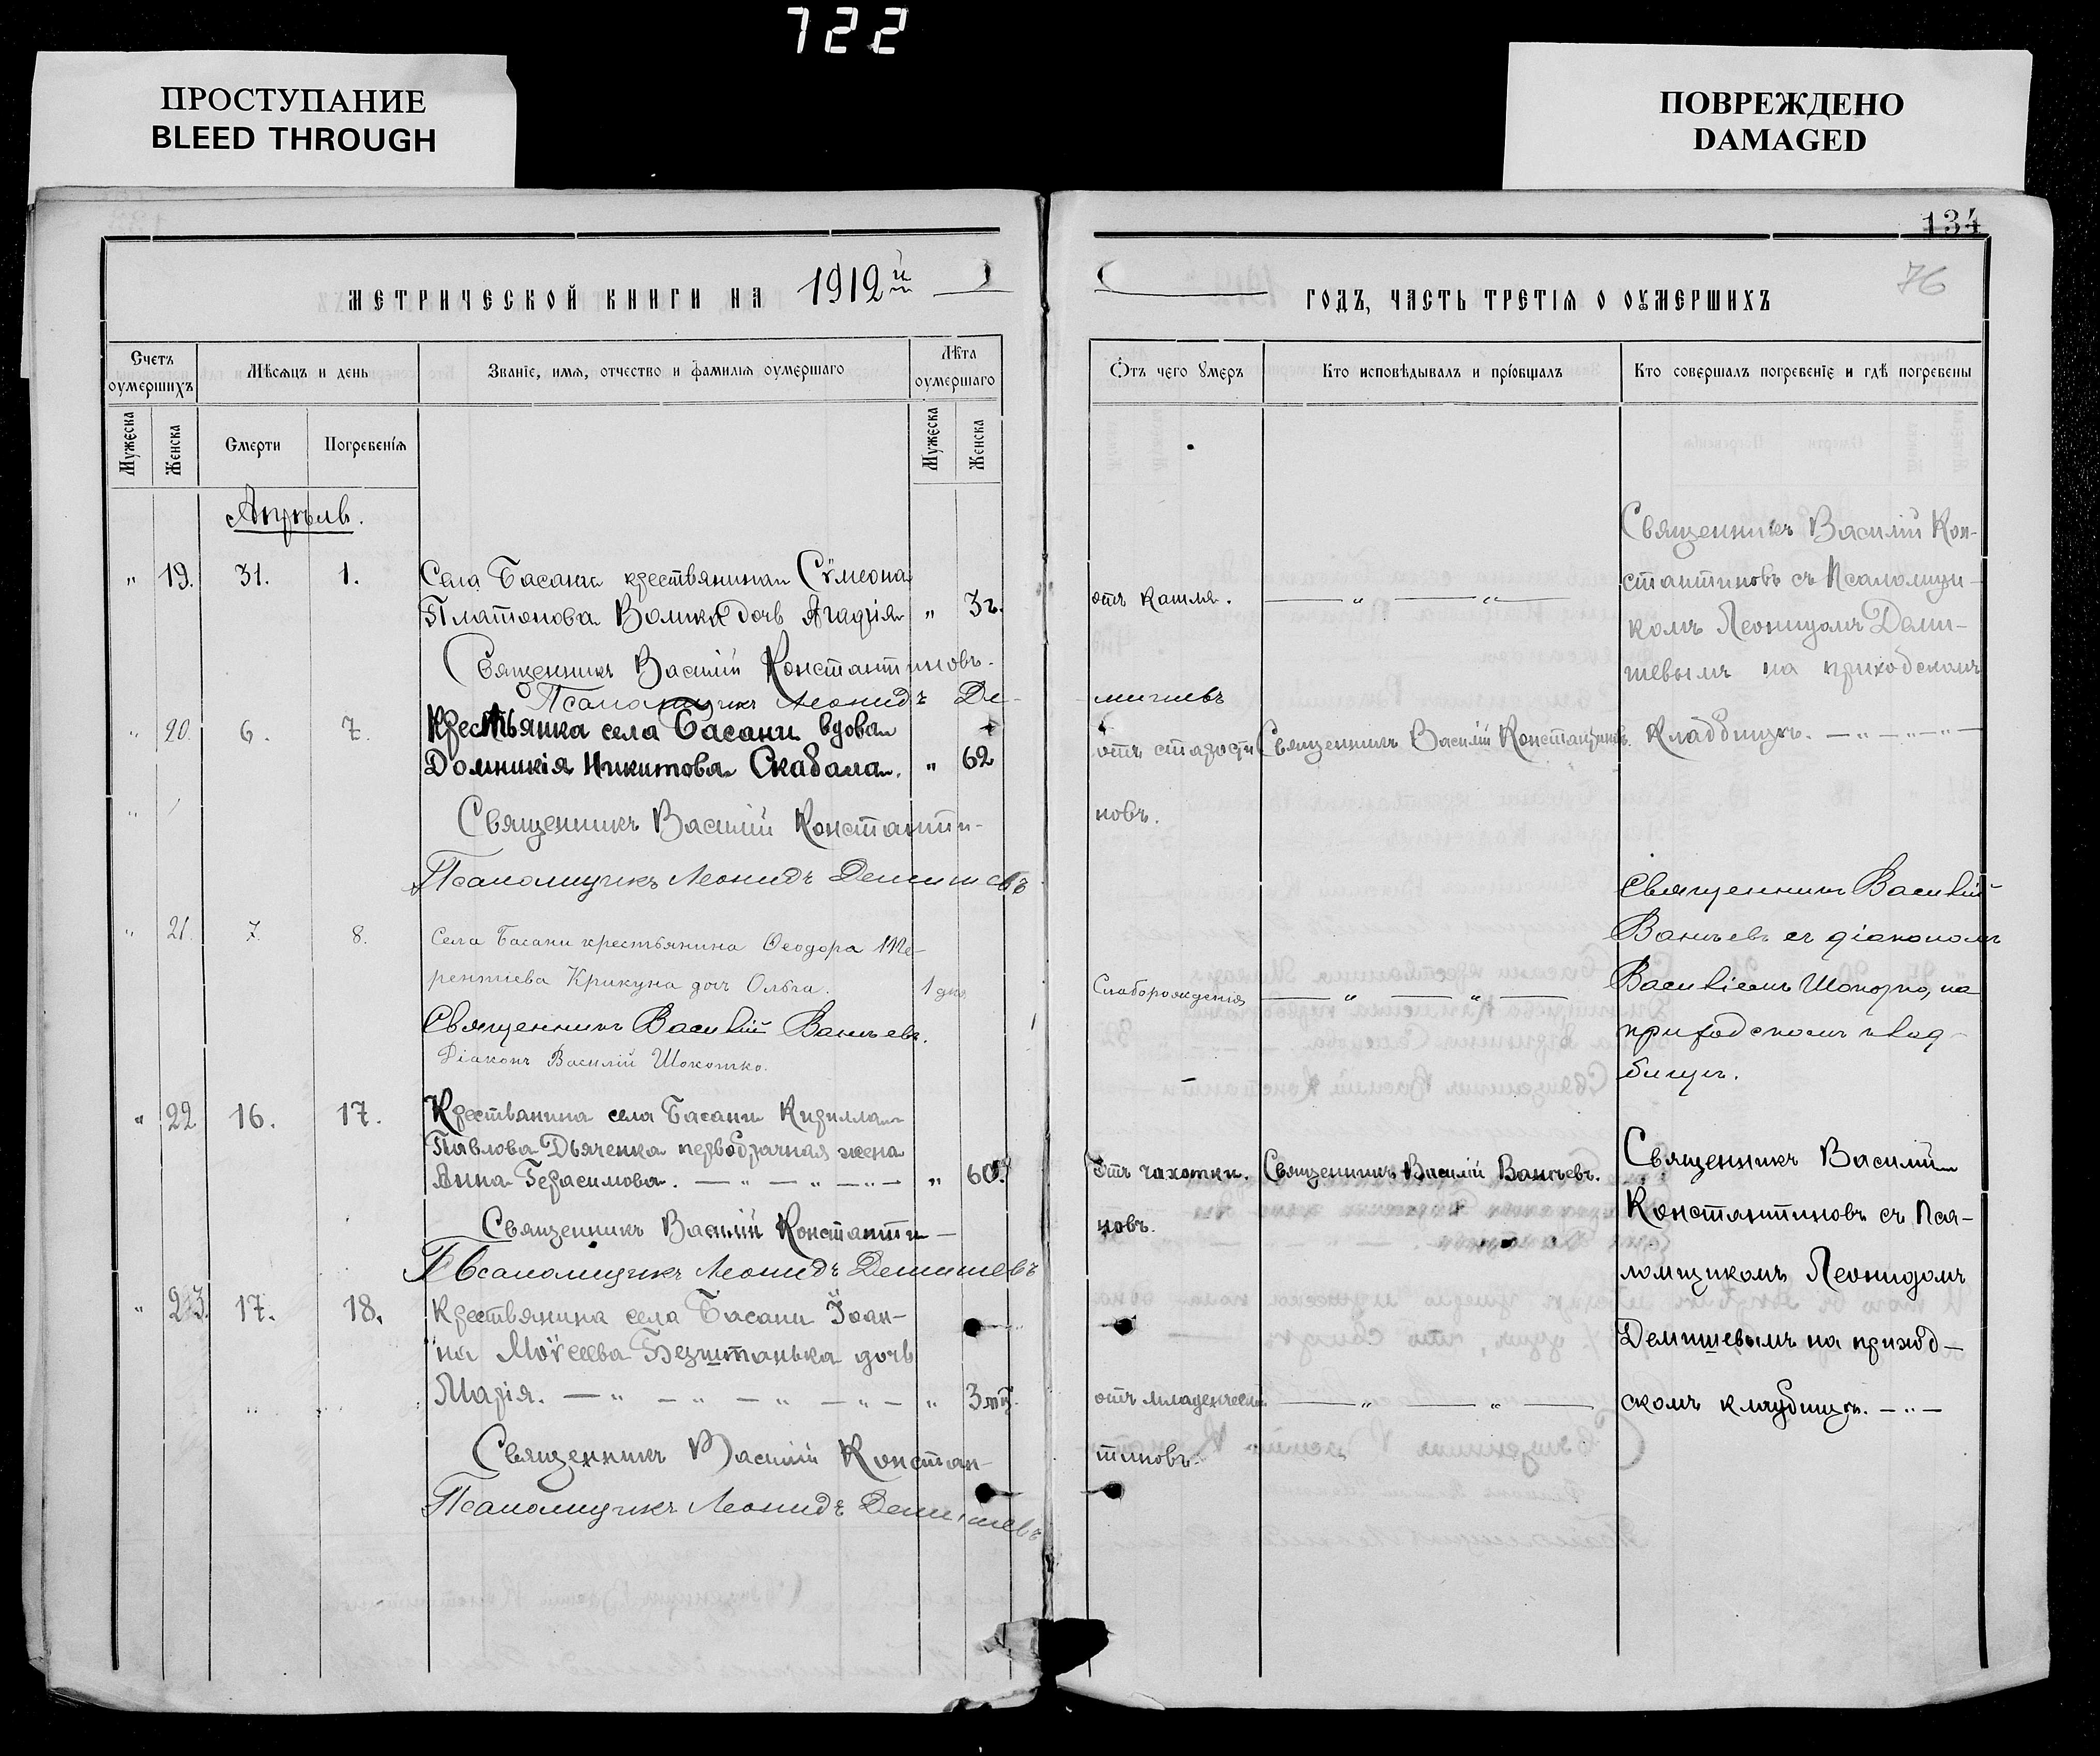 722
ПРОСТУПАНИЕ
BLEED THROUGH
ПОВРЕЖДЕНО
DAMAGED
134
76
МЕТРИЧЕСКОЙ КНИГИ НА 1912й
ГОДЪ, ЧАСТЬ ТРЕТІЯ О ОУМЕРШИХЪ
Счетъ оумершихъ
Мѣсяцъ и день
Званіе, имя, отчество и фамилія оумершаго
Лѣта оумершаго
Отъ чего умеръ
Кто исповѣдывалъ и пріобщалъ
Кто совершалъ погребеніе и гдѣ погребены
Мужеска
Женска
Смерти
Погребенія
Мужеска
Женска
Апрѣль.
„ 19. 31. 1. Села Басани крестьянина Сѵмеона
Платонова Волика дочь Агафія „ 3г.
отъ кашля. — „ — „ —
Священникъ Василій Кон-
стантиновъ съ Псаломщи-
комъ Леонидомъ Деми-
шевымъ на приходскомъ
Священникъ Василій Константиновъ.
Псаломщикъ Леонидъ Де-
мишевъ
„ 20. 6. 7. Крестьянка села Басани вдова
Домникія Никитова Скабала. „ 62
отъ старости Священникъ Василій Константиновъ. Кладбищѣ. — „ — „ — „ —
Священникъ Василій Константи-
новъ.
Псаломщикъ Леонидъ Демишевъ
„ 21. 7. 8. Села Басани крестьянина Ѳеодора Те-
рентіева Крикуна дочь Ольга. 1 дня
Слаборожденія — „ — „ —
Священникъ Василій
Ваньевъ съ діакономъ
Василіемъ Шокотко, на
приходскомъ клад-
бищѣ.
Священникъ Василій Ваньевъ.
Діаконъ Василій Шокотко.
„ 22 16. 17. Крестьянина села Басани Кирилла
Павлова Дьяченка первобрачная жена
Анна Герасимова. — „ — „ — „ — „ 60.
Отъ чахотки. Священникъ Василій Ваньевъ.
Священникъ Василій
Константиновъ съ Пса-
ломщикомъ Леонидомъ
Демишевымъ на приход-
скомъ кладбищѣ. — „ —
Священникъ Василій Константи-
новъ.
Псаломщикъ Леонидъ Демишевъ
„ 23. 17. 18. Крестьянина села Басани Іоан-
на Моѵсеева Безштанька дочь
Марія. — „ — „ — „ — „ — „ 3 мц.
отъ младенческ. — „ — „ —
Священникъ Василій Констан-
тиновъ.
Псаломщикъ Леонидъ Демишевъ